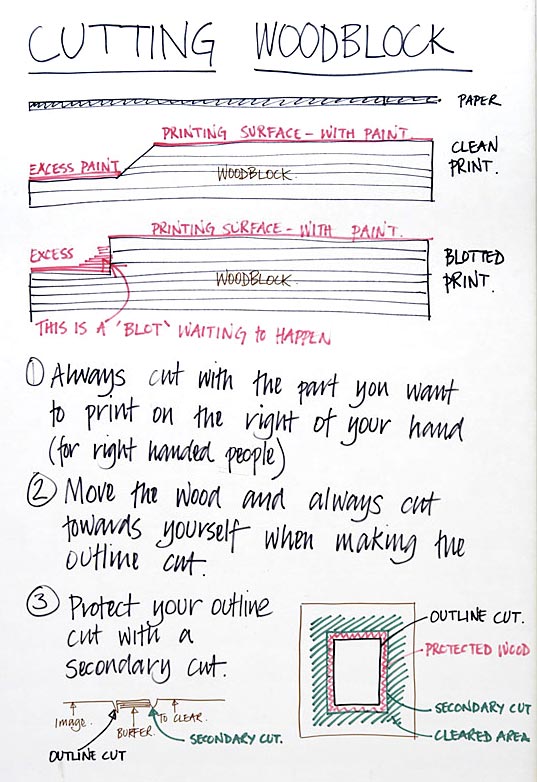 CUTTING WOODBLOCK
PAPER
PRINTING SURFACE - WITH PAINT.
EXCESS PAINT
WOODBLOCK.
CLEAN
PRINT.
PRINTING SURFACE - WITH PAINT.
EXCESS
WOODBLOCK.
BLOTTED
PRINT.
THIS IS A 'BLOT' WAITING to HAPPEN
① Always cut with the part you want
to print on the right of your hand
(for right handed people)
② Move the wood and always cut
towards yourself when making the
outline cut.
③ Protect your outline
cut with a
secondary cut.
Image.
BUFFER.
TO CLEAR.
OUTLINE CUT
SECONDARY CUT.
OUTLINE CUT.
PROTECTED WOOD
SECONDARY CUT
CLEARED AREA